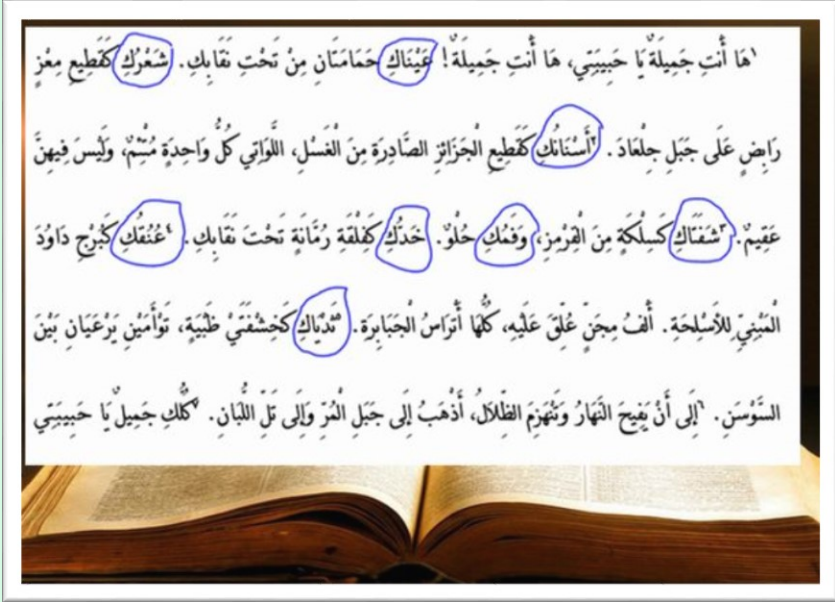 ١هَا أَنْتِ جَمِيلَةٌ يَا حَبِيبَتِي، هَا أَنْتِ جَمِيلَةٌ! عَيْنَاكِ حَمَامَتَانِ مِنْ تَحْتِ نَقَابِكِ. شَعْرُكِ كَقَطِيعِ مِعْزٍ
رَابِضٍ عَلَى جَبَلِ جِلْعَادَ. ٢أَسْنَانُكِ كَقَطِيعِ الْجَزَائِزِ الصَّادِرَةِ مِنَ الْغَسْلِ، اللَّوَاتِي كُلُّ وَاحِدَةٍ مُتْئِمٌ، وَلَيْسَ فِيهِنَّ
عَقِيمٌ. ٣شَفَتَاكِ كَسِلْكَةٍ مِنَ الْقِرْمِزِ، وَفَمُكِ حُلْوٌ. خَدُّكِ كَفِلْقَةِ رُمَّانَةٍ تَحْتَ نَقَابِكِ. ٤عُنُقُكِ كَبُرْجِ دَاوُدَ
الْمَبْنِيِّ لِلأَسْلِحَةِ. أَلْفُ مِجَنٍّ عُلِّقَ عَلَيْهِ، كُلُّهَا أَتْرَاسُ الْجَبَابِرَةِ. ٥ثَدْيَاكِ كَخِشْفَتَيْ ظَبْيَةٍ، تَوْأَمَيْنِ يَرْعَيَانِ بَيْنَ
السَّوْسَنِ. ٦إِلَى أَنْ يَفِيحَ النَّهَارُ وَتَنْهَزِمَ الظِّلاَلُ، أَذْهَبُ إِلَى جَبَلِ الْمُرِّ وَإِلَى تَلِّ اللُّبَانِ. ٧كُلُّكِ جَمِيلٌ يَا حَبِيبَتِي